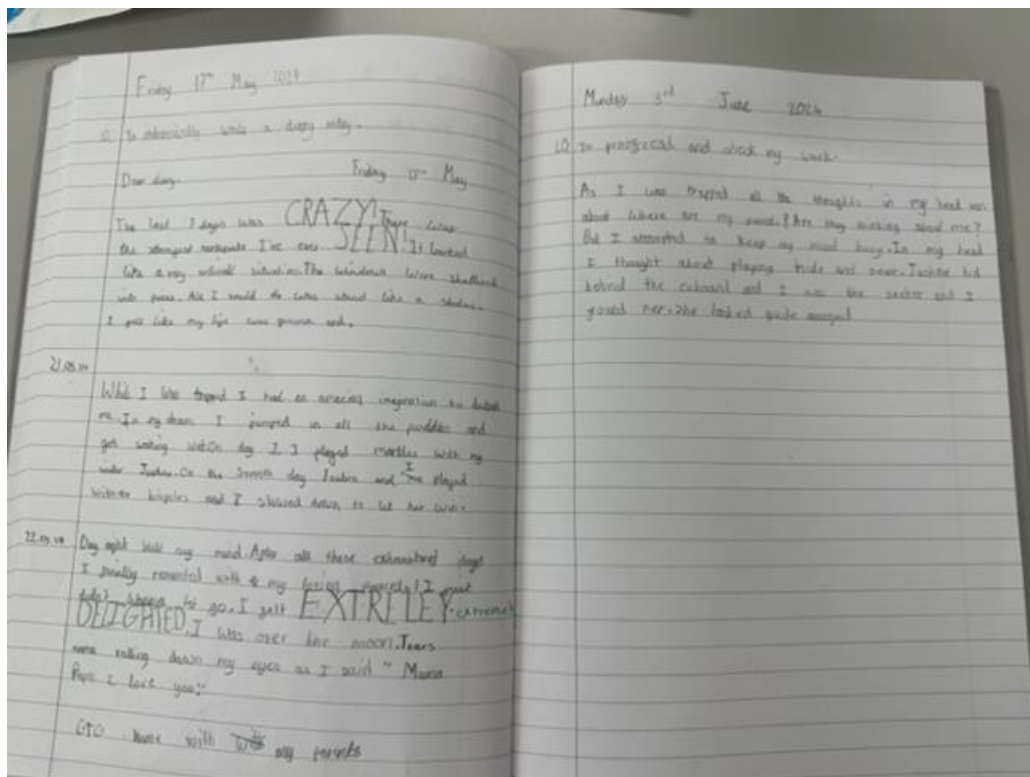 Friday 17th May 2024
LO To independently write a diary entry.
Friday 17th May
Dear diary,
The last 7 days was CRAZY! There was
the strongest earthquake I've ever SEEN! It looked
like a very critical situation. The windows were shattered
into pieces. All I could do was stand like a statue.
I felt like my life was gonna end.
21.05.24
While I was trapped I had an amazing imagination
me. In my dream I jumped in all the puddles and
got soaking wet. On day 2 I played marbles with my
sister Justine. On the seventh day Justine and I played
with bicycles and I slowed down to let her win.
22.05.24
Day eight blew my mind. After all these exhausted days
I finally reunited with my loving parents! I just
didn't wanna let go. I felt EXTRELEY extremely
DELIGHTED. I was over the moon. Tears
came rolling down my eyes as I said " Mama
Papa I love you!"
GTG home with my parents
Monday 3rd June 2024
LO To proofread and check my work.
As I was trapped all the thoughts in my head was
about where are my parents? Are they thinking about me?
But I attempted to keep my mind busy. In my head
I thought about playing hide and seek. Justine hid
behind the cuboard and I was the seeker and I
found her. She looked quite annoyed